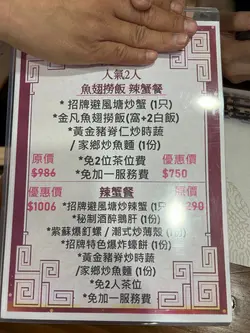 人氣2人
魚翅撈飯 辣蟹餐
* 招牌避風塘炒蟹 (1只)
* 金凡魚翅撈飯(窩+2白飯)
* 黃金豬脊仁炒時蔬
/ 家鄉炒魚麵 (1份)
原價 * 免2位茶位費 優惠價
$986 * 免加一服務費 $750
優惠價 辣蟹餐
$1006 *招牌避風塘炒辣蟹 (1只) 290
*秘制酒醉鵝肝 (1份)
*紫蘇爆釘螺 / 潮式炒薄殼 (1份)
*招牌特色爆炸蠔餅 (1份)
*黃金豬脊炒時蔬 /
家鄉炒魚麵 (1份)
* 免2人茶位
* 免加一服務費